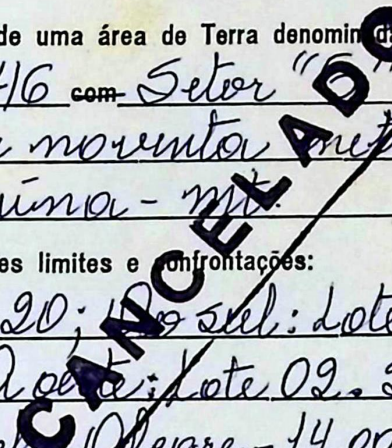 de uma área de Terra denominada
416 com Setor "G"
noventa met
uina - MT.
es limites e confrontações:
20; Ao sul: Lote
A oeste: Lote 02.
Alegre - 14 
CANCELADO